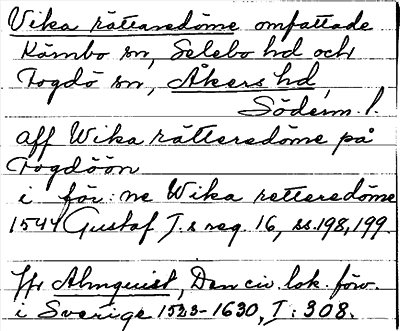 Vika rättaredöme omfattade
Kärnbo sn, Selebo hd och
Fogdö sn, Åkers hd,
Söderm. l.
aff Wika rättersdöme på
Fogdöön
i för:ne Wika rettersdöme
1544 Gustaf I.s reg. 16, ss. 198, 199.
Jfr Almquist, Den civ. lok. förv.
i Sverige 1523-1630, I: 308.